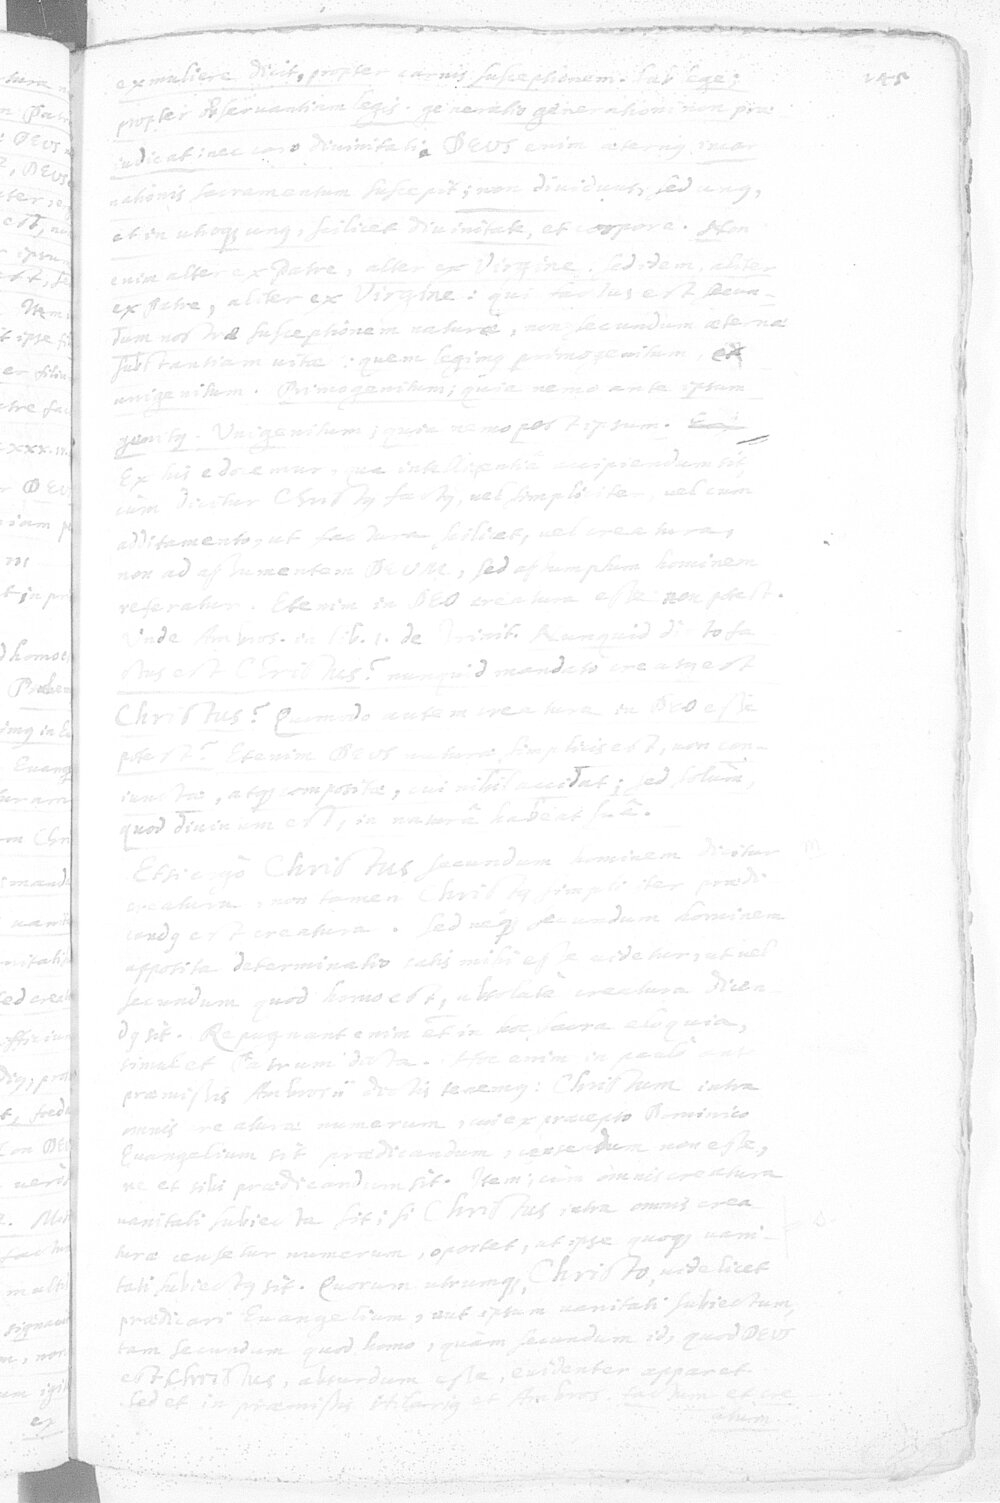 145
ex muliere dicit, propter carnis susceptionem. sub lege;
propter observantiam legis. generatio generationi non præ
iudicat: nec caro divinitati. DEUS enim æternq incar
nationis sacramentum suscepit; non dividuus, sed unq,
et in utroq, unq, scilicet divinitate, et corpore. Non
enim alter ex Patre, alter ex Virgine. sed idem, aliter
ex Patre, aliter ex Virgine: qui factus est secun-
dum nostræ susceptionem naturæ, non secundum æternæ
substantiam vitæ: quem legimq primogenitum, et
unigenitum. Primogenitum; quia nemo ante ipsum
genitq. Unigenitum; quia nemo post ipsum.
Ex his edocemur, quæ intelligentiâ accipiendum sit,
cùm dicitur Christq factq, vel simpliciter, vel cum
additamento, ut factura scilicet, vel creatura,
non ad assumentem DEUM, sed assumptum hominem
referatur. Etenim in DEO creatura esse non potest.
Unde Ambros. in lib. 1. de Trinit. Nunquid dicto fa
ctus est Christus? nunquid mandato creatq est
Christus? Quomodo autem creatura in DEO esse
potest? Etenim DEUS naturæ simplicis est, non con-
iunctæ, atq compositæ, cui nihil accidat; sed solùm,
quod divinum est, in naturâ habeat suâ.
Etsi ergò Christus secundum hominem dicitur
creatura, non tamen Christq simpliciter prædi
candq est creatura. Sed neq secundum hominem
apposita determinatio satis mihi esse videtur, ut vel
secundum quod homo est, absolutè creatura dicen-
dq sit. Repugnant enim et in hoc sacra eloquia,
simul et Patrum dicta. enim in paulò ant
præmissis Ambrosii dictis tenemq: Christum intra
omnis creaturæ numerum, cui ex præcepto Dominico
Evangelium sit prædicandum, censendum non esse,
ne et sibi prædicandum sit. Item; cùm omnis creatura
vanitati subiecta sit; si Christus intra omnis crea
turæ censetur numerum, oportet, ut ipse quoq vani-
tati subiectq sit. Quorum utrumq, Christo, videlicet
prædicari Evangelium, aut ipsum vanitati subiectum,
tam secundum quod homo, quàm secundum id, quod DEUS
est Christus, absurdum esse, evidenter apparet
Sed et in præmissis Hilariq et Ambros. factum et cre
atum